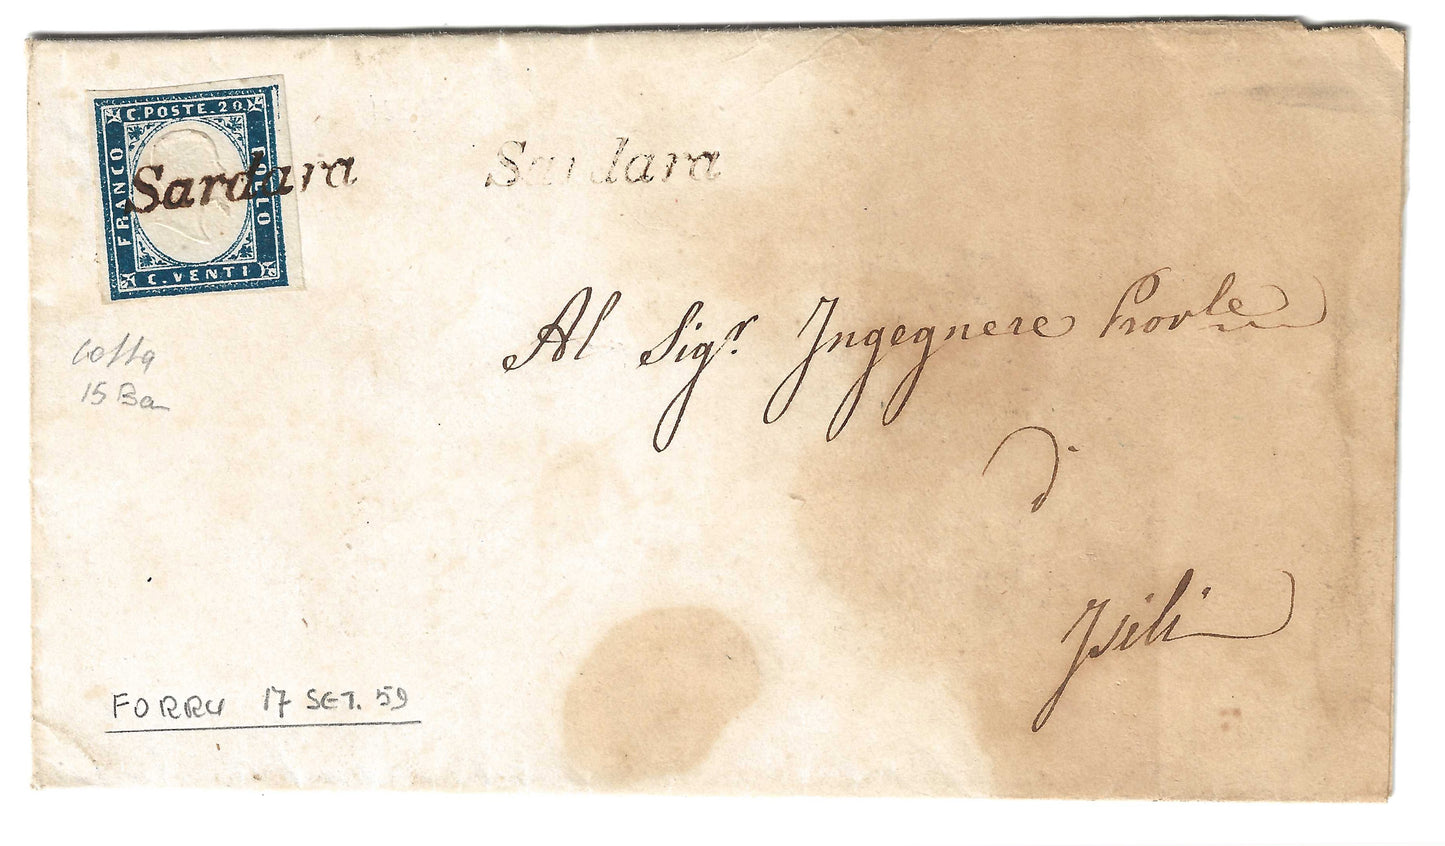 C. POSTE. 20.
FRANCO
BOLLO
C. VENTI
Sardara
Sardara
Al Sigr. Ingegnere Prov.le
di
Isili
15 Ba
FORRU 17 SET. 59